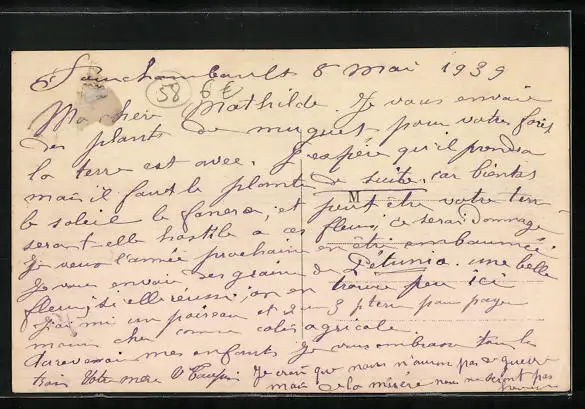 Fourchambault 8 Mai 1939
58 6 €
Ma chère Mathilde. Je vous envoie
des plants de muguet pour votre
la terre est avec. J'espère qu'il prendra
mais il faut le planter de suite, car bientôt
M
le soleil le fanera, et peut être votre terre
serat elle hostile a ces fleurs, ce serai Dommage
Je veux l'année prochaine en être embaumée.
Je vous envoie des graines de Pétunia. une belle
fleur, si elle réussi, on en trouve peu ici
J'ai mi un paiseau et 2 ou 3 pour payer
moins cher comme colis agricole.
Aurevoir mes enfants Je vous embrasse tous les
trois Votre mère
Je crois que nous n'aurons pas de guerre
mais de la misère nous ne seront pas